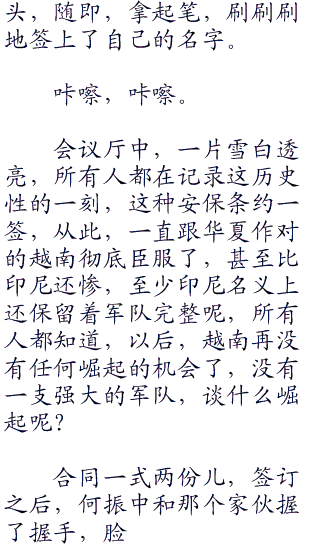 头，随即，拿起笔，刷刷刷
地签上了自己的名字。
咔嚓，咔嚓。
会议厅中，一片雪白透
亮，所有人都在记录这历史
性的一刻，这种安保条约一
签，从此，一直跟华夏作对
的越南彻底臣服了，甚至比
印尼还惨，至少印尼名义上
还保留着军队完整呢，所有
人都知道，以后，越南再没
有任何崛起的机会了，没有
一支强大的军队，谈什么崛
起呢？
合同一式两份儿，签订
之后，何振中和那个家伙握
了握手，脸